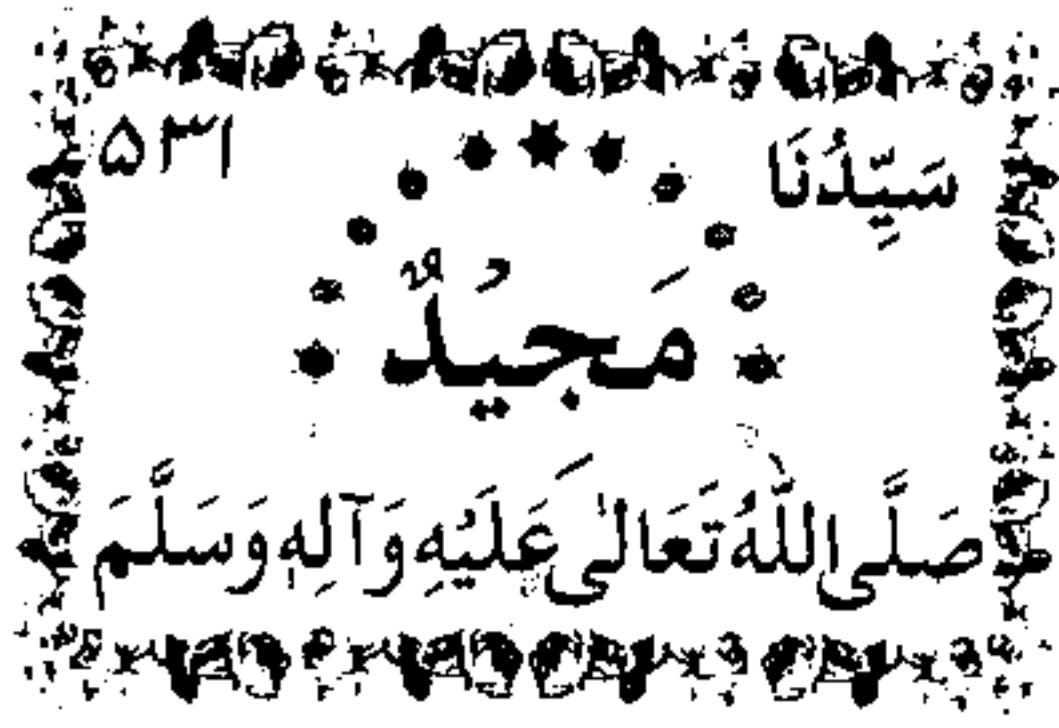 سَيِّدُنَا ۵۳۱
مَجِيْدٌ
صَلَّى اللّٰهُ تَعَالىٰ عَلَيْهِ وَآلِهٖ وَسَلَّمَ